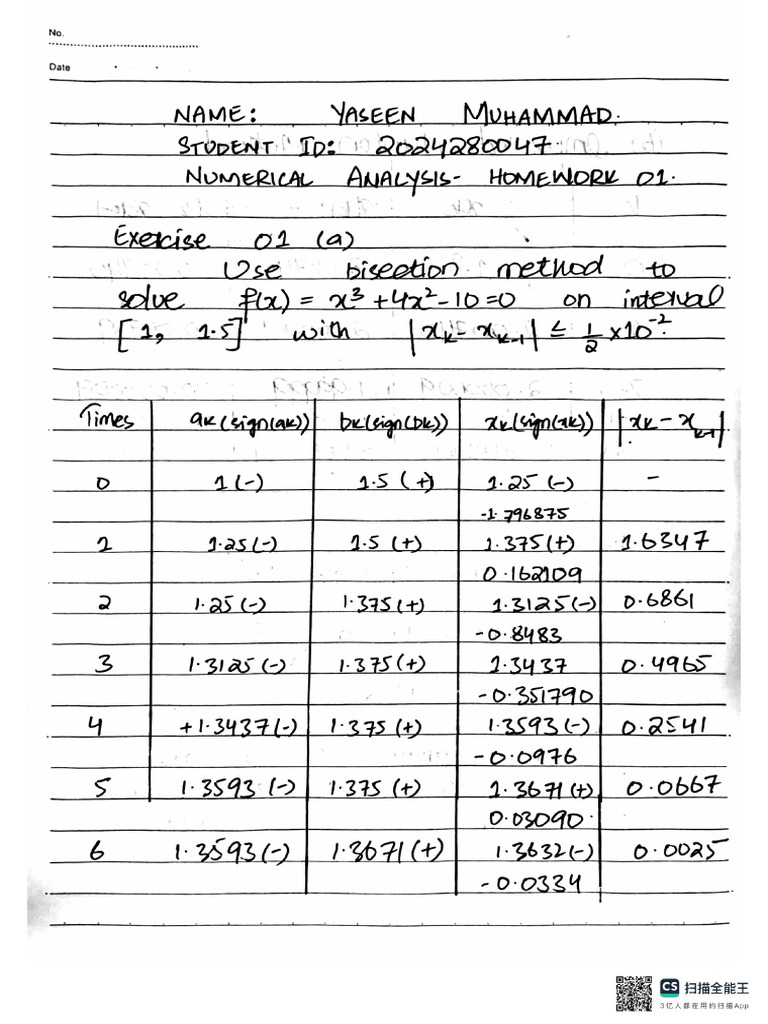 No.
Date
NAME: YASEEN MUHAMMAD.
STUDENT ID: 2024280047.
NUMERICAL ANALYSIS- HOMEWORK 01.
Exercise 01 (a)
Use bisection method to
solve f(x) = x³ + 4x² - 10 = 0 on interval
[1, 1.5] with |xₖ - xₖ₋₁| ≤ 1/2 × 10⁻².
Times aₖ(sign(aₖ)) bₖ(sign(bₖ)) xₖ(sign(xₖ)) |xₖ - xₖ₋₁|
0 1(-) 1.5 (+) 1.25 (-) -
-1.796875
1 1.25(-) 1.5 (+) 1.375(+) 1.6347
0.162109
2 1.25(-) 1.375(+) 1.3125(-) 0.6861
-0.8483
3 1.3125(-) 1.375(+) 1.3437 0.4965
-0.351790
4 +1.3437(-) 1.375 (+) 1.3593(-) 0.2541
-0.0976
5 1.3593(-) 1.375 (+) 1.3671(+) 0.0667
0.03090.
6 1.3593(-) 1.3671(+) 1.3632(-) 0.0025
-0.0334
CS 扫描全能王
3亿人都在用的扫描App